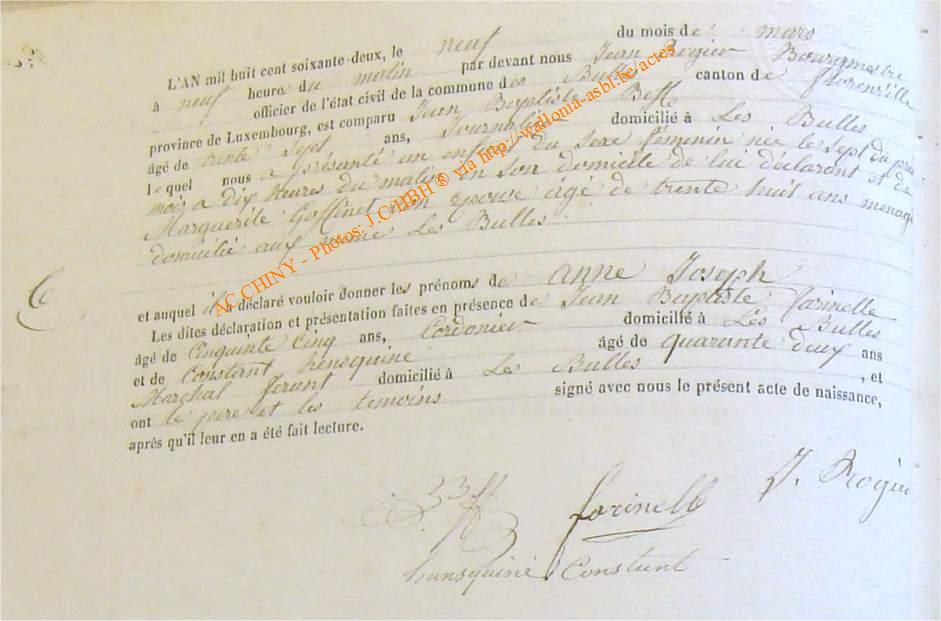 L'AN mil huit cent soixante-deux, le neuf du mois de mars
à neuf heure du matin par devant nous Jean Rogier Bourgmestre
officier de l'état civil de la commune des Bulles canton de florenville
province de Luxembourg, est comparu Jean Baptiste
âgé de trente Sept ans, Journalier domicilié à Les Bulles
lequel nous a présanté un enfant du Sexe féminin née le Sept du
mois a dix heures du matin en son domicile de lui déclarant et de
Marguerite Goffinet son epouse agé de trente huit ans
domicilié aux même Les Bulles.
et auquel il a déclaré vouloir donner les prénoms de anne Joseph
Les dites déclaration et présentation faites en présence de Jean Baptiste farinelle
âgé de Cinquinte Cinq ans, Cordonier domicilié à Les Bulles
et de Constant hensquine âgé de quarante deux ans
Marchal ferant domicilié à Les Bulles, et
ont le pere et les temoins signé avec nous le présent acte de naissance,
après qu'il leur en a été fait lecture.
J. Rogier
farinelle
hansquine Constant
AC CHINY - Photos: J.C HBH ® via http://wallonia-asbl.be/actes